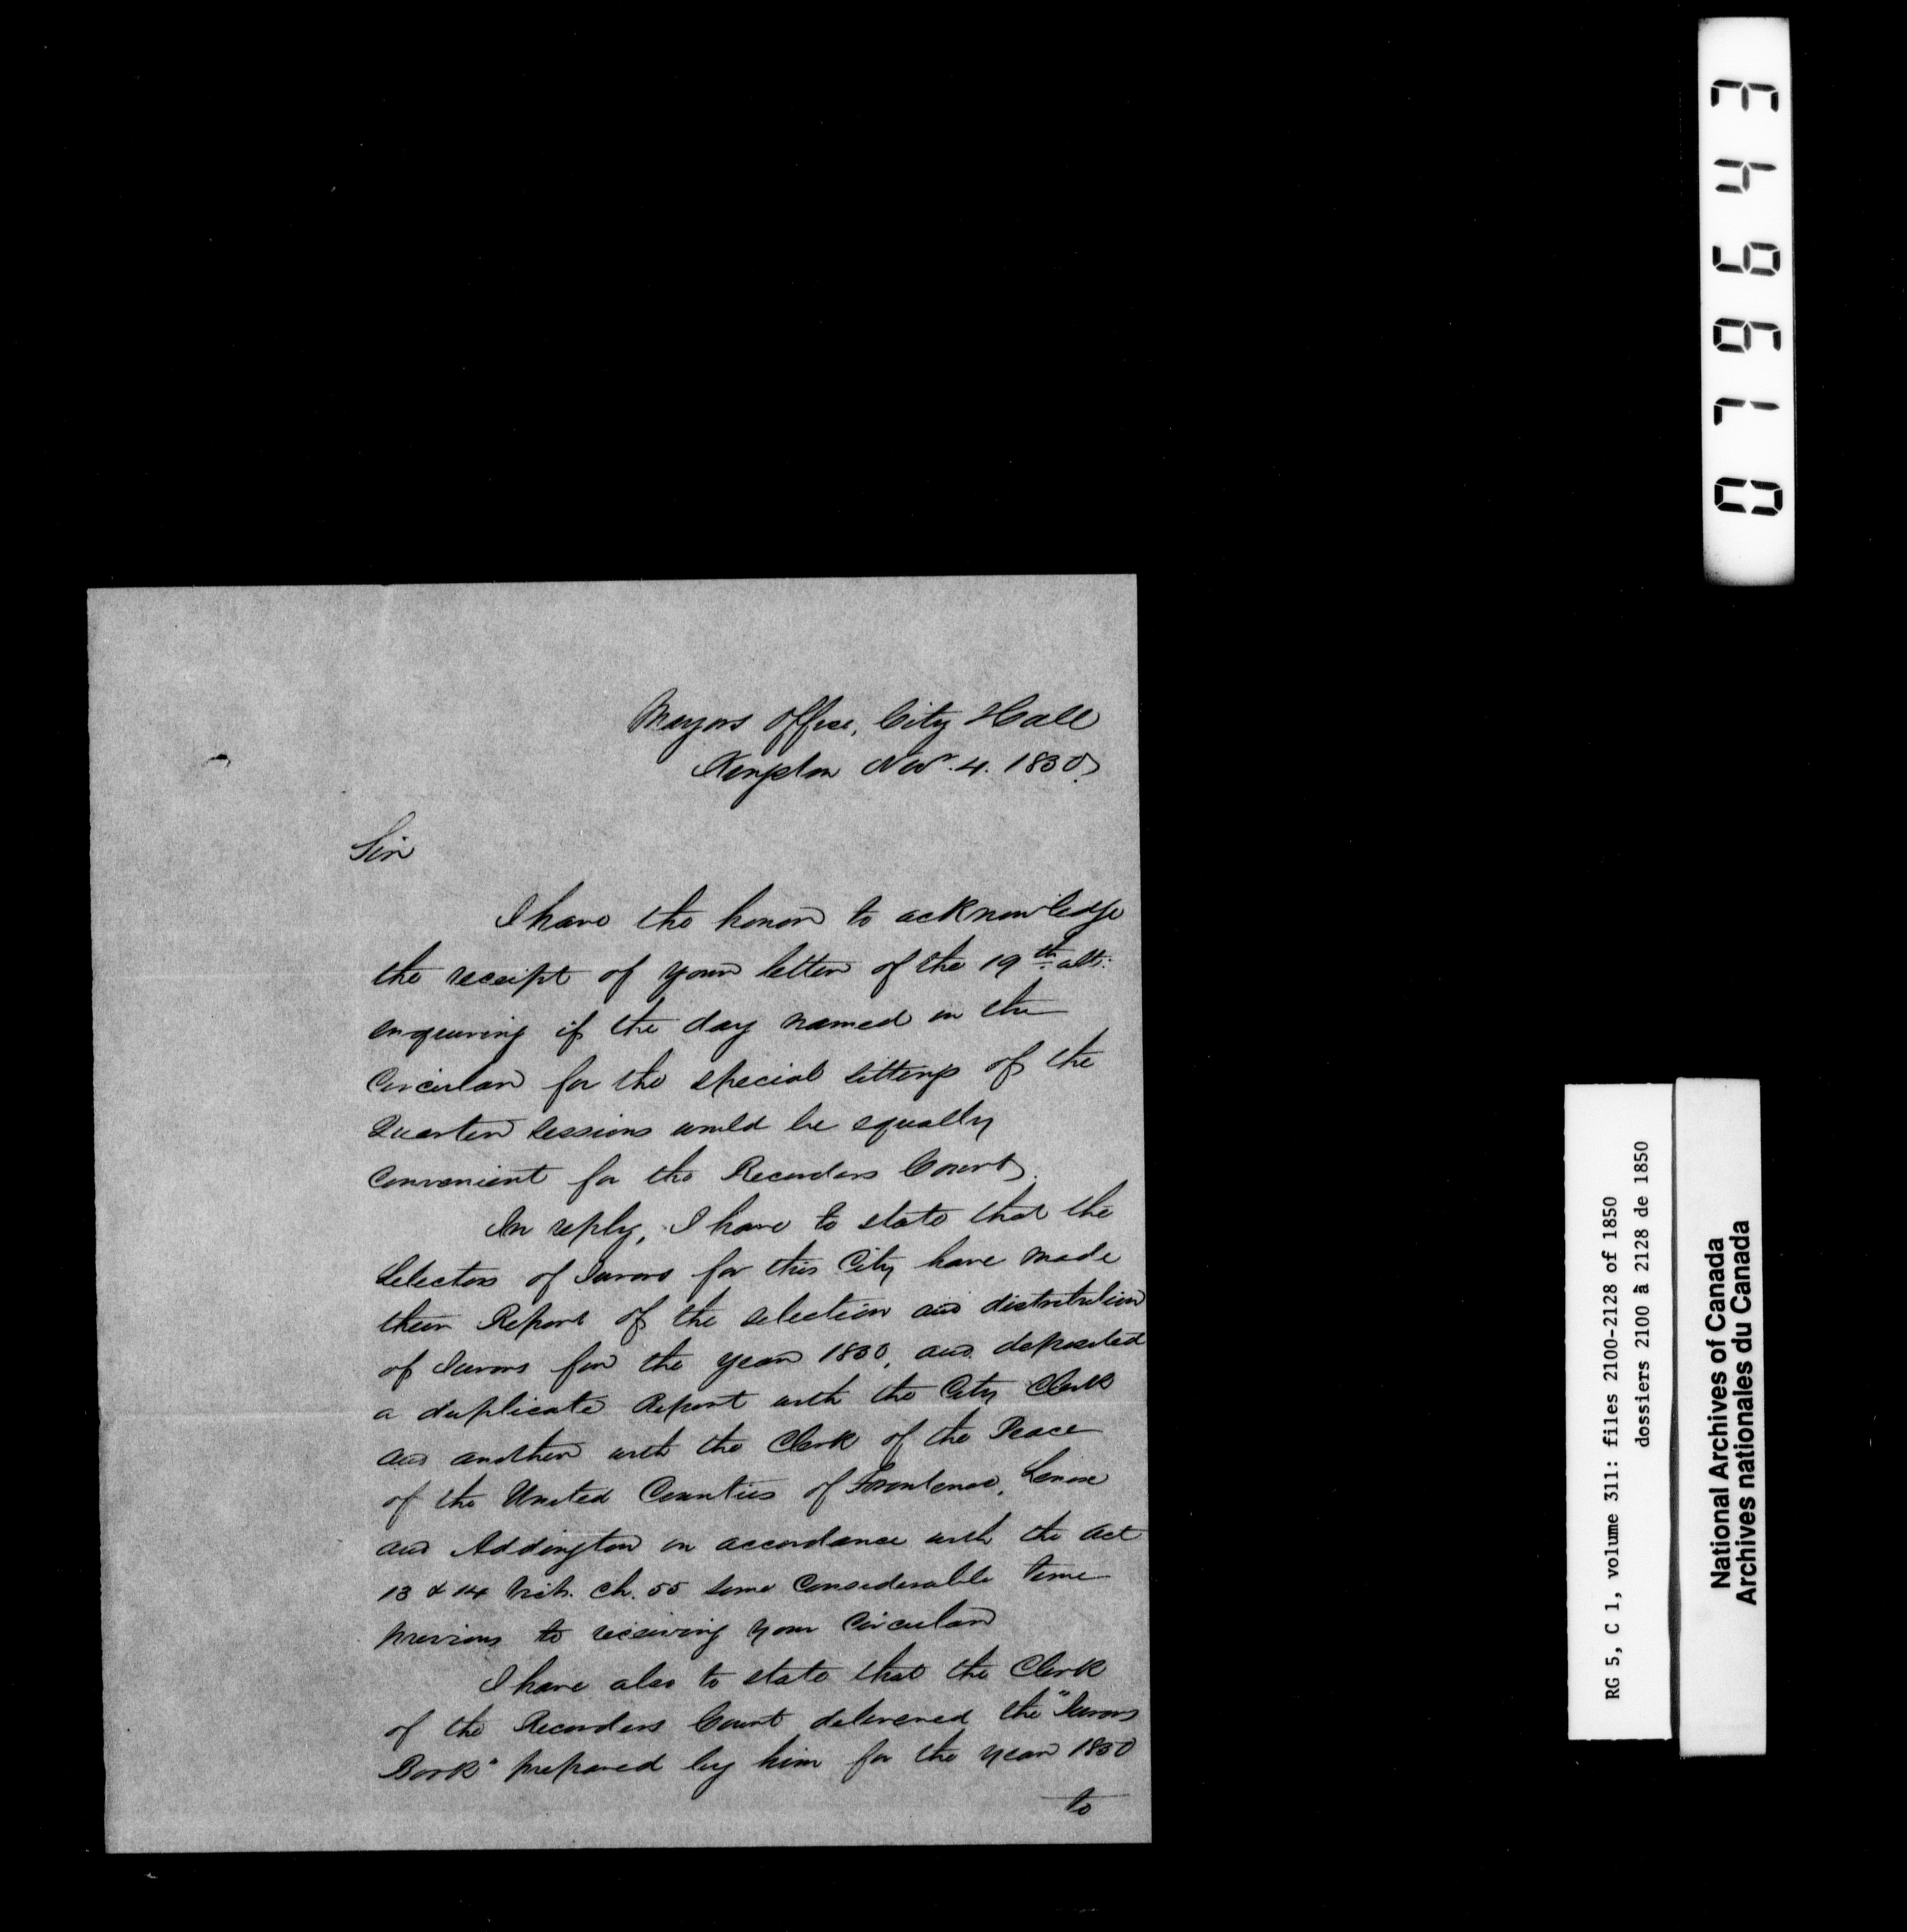 Mayors Office, City Hall
Kingston Nov. 4. 1850.
Sir
I have the honor to acknowledge
the receipt of your letter of the 19th ult:
enquiring if the day named in the
Circular for the special sittings of the
Quarter Sessions would be equally
convenient for the Recorders Court.
In reply, I have to state that the
Selectors of Jurors for this City have made
their Report of the selection and distribution
of Jurors for the year 1850, and deposited
a duplicate Report with the City Clerk
and another with the Clerk of the Peace
of the United Counties of Frontenac, Lenox
and Addington in accordance with the Act
13 & 14 Vict. ch. 55 some considerable time
previous to receiving your Circular
I have also to state that the Clerk
of the Recorders Court delivered the "Jurors
Book" prepared by him for the year 1850
to
079643
RG 5, C 1, volume 311: files 2100-2128 of 1850
dossiers 2100 à 2128 de 1850
National Archives of Canada
Archives nationales du Canada